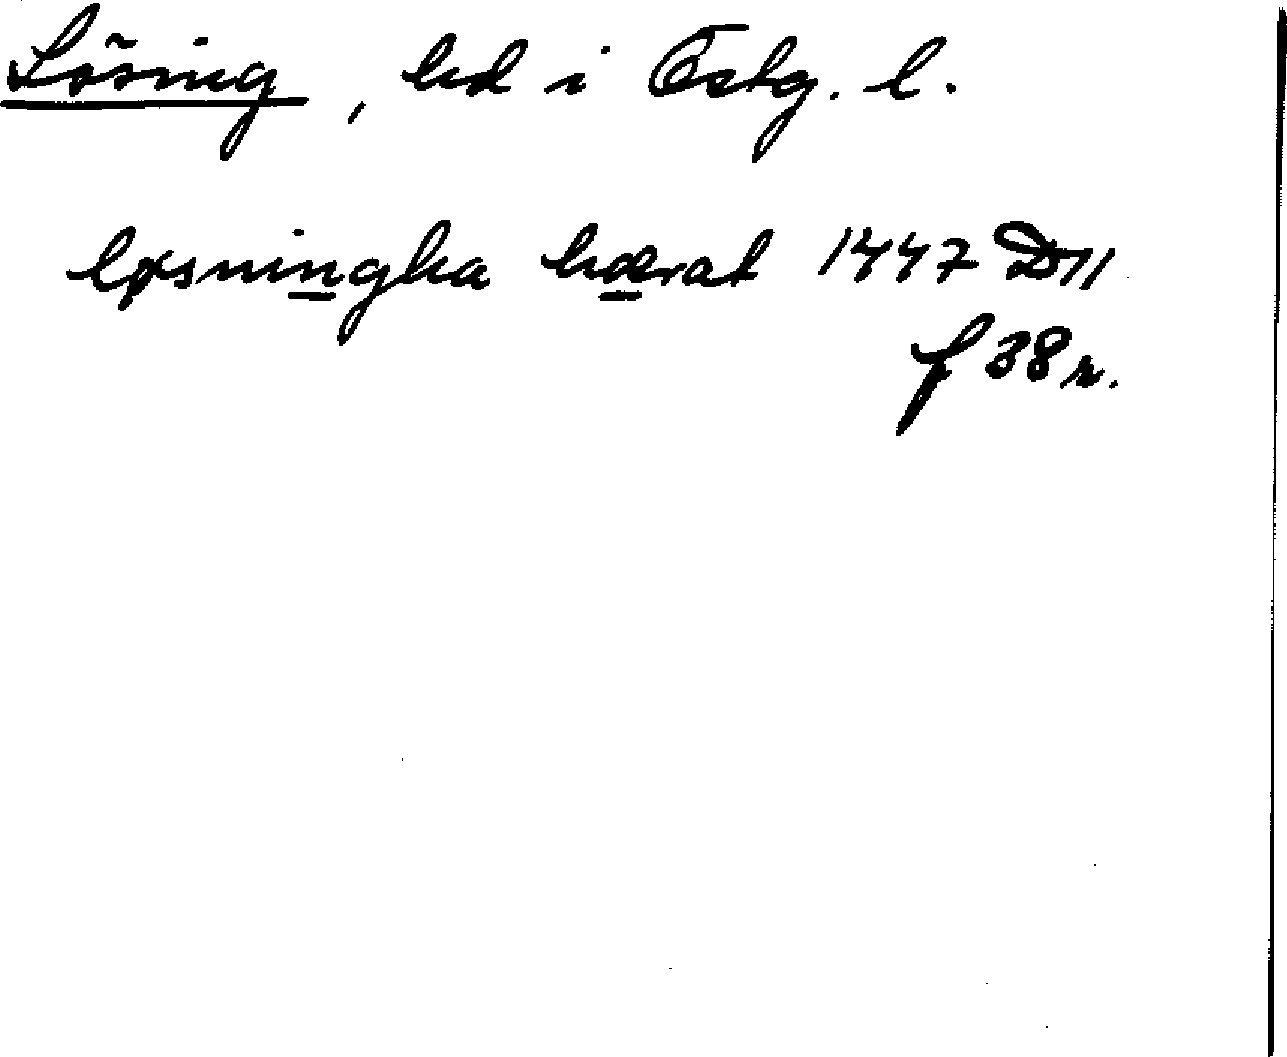 Lösing, hd i Östg. l.
løsningha hærat 1447 D11
f 38 r.